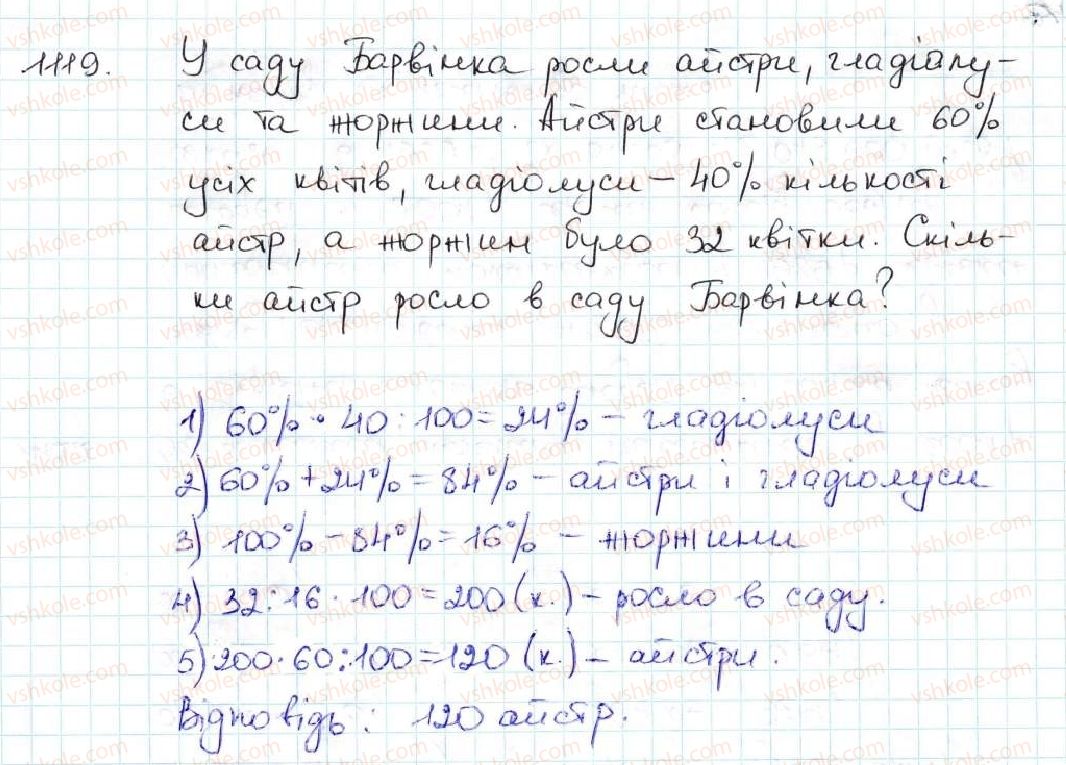 1119. У саду Барвінка росли айстри, гладіолу-
си та жоржини. Айстри становили 60%
усіх квітів, гладіолуси – 40% кількості
айстр, а жоржин було 32 квітки. Скіль-
ки айстр росло в саду Барвінка?
1) 60% · 40 : 100 = 24% – гладіолуси
2) 60% + 24% = 84% – айстри і гладіолуси
3) 100% – 84% = 16% – жоржини
4) 32 : 16 · 100 = 200 (к.) – росло в саду.
5) 200 · 60 : 100 = 120 (к.) – айстри.
Відповідь: 120 айстр.
vshkole.com